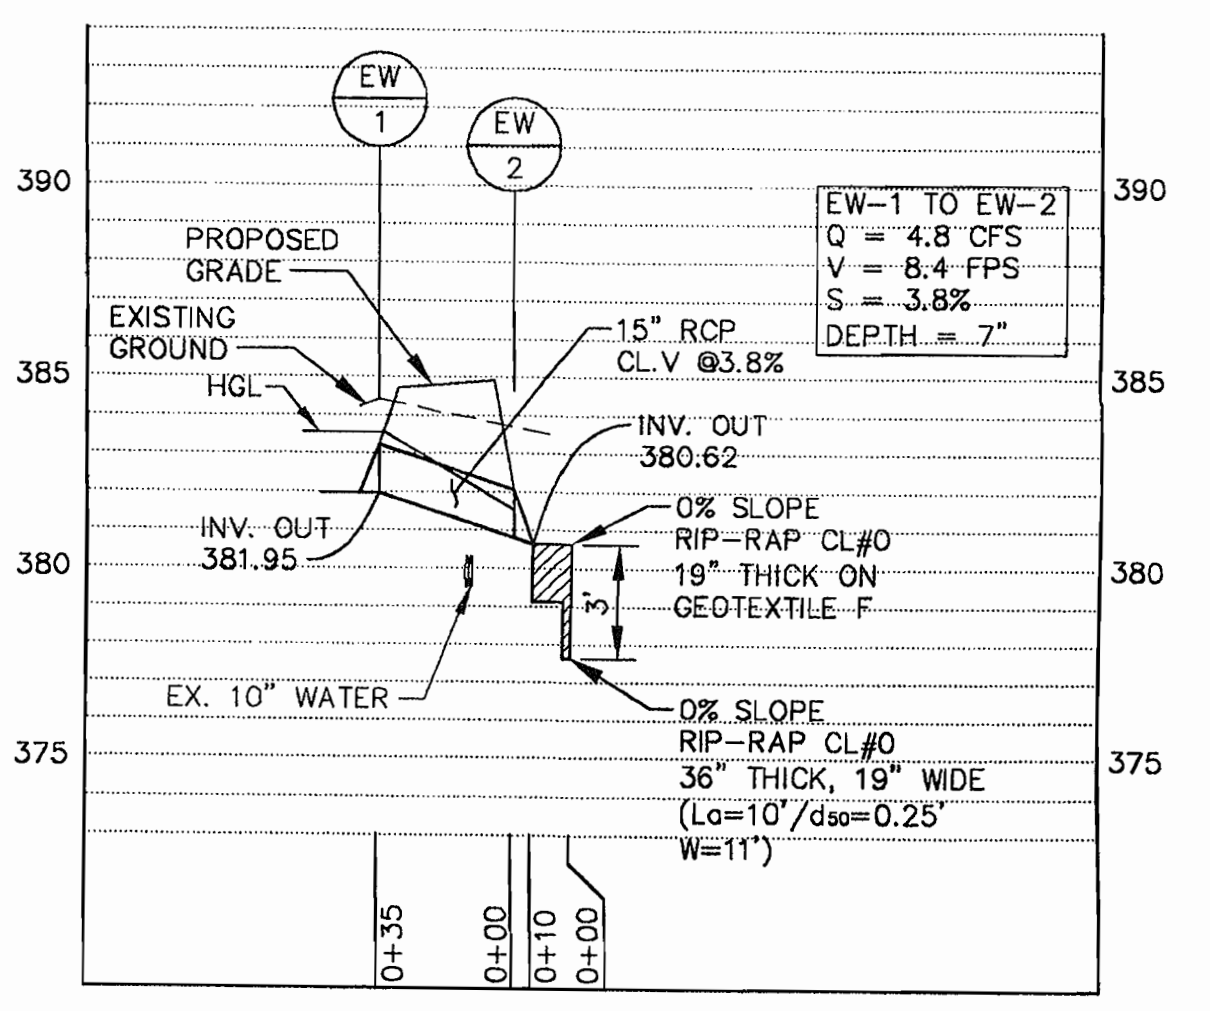 EW
1
EW
2
390
390
EW-1 TO EW-2
Q = 4.8 CFS
V = 8.4 FPS
S = 3.8%
DEPTH = 7"
PROPOSED
GRADE
EXISTING
GROUND
15" RCP
CL.V @3.8%
385
385
HGL
INV. OUT
380.62
INV. OUT
381.95
0% SLOPE
RIP-RAP CL#0
19" THICK ON
GEOTEXTILE F
380
380
3'
EX. 10" WATER
0% SLOPE
RIP-RAP CL#0
36" THICK, 19" WIDE
(La=10'/d50=0.25'
W=11')
375
375
0+35
0+00
0+10
0+00